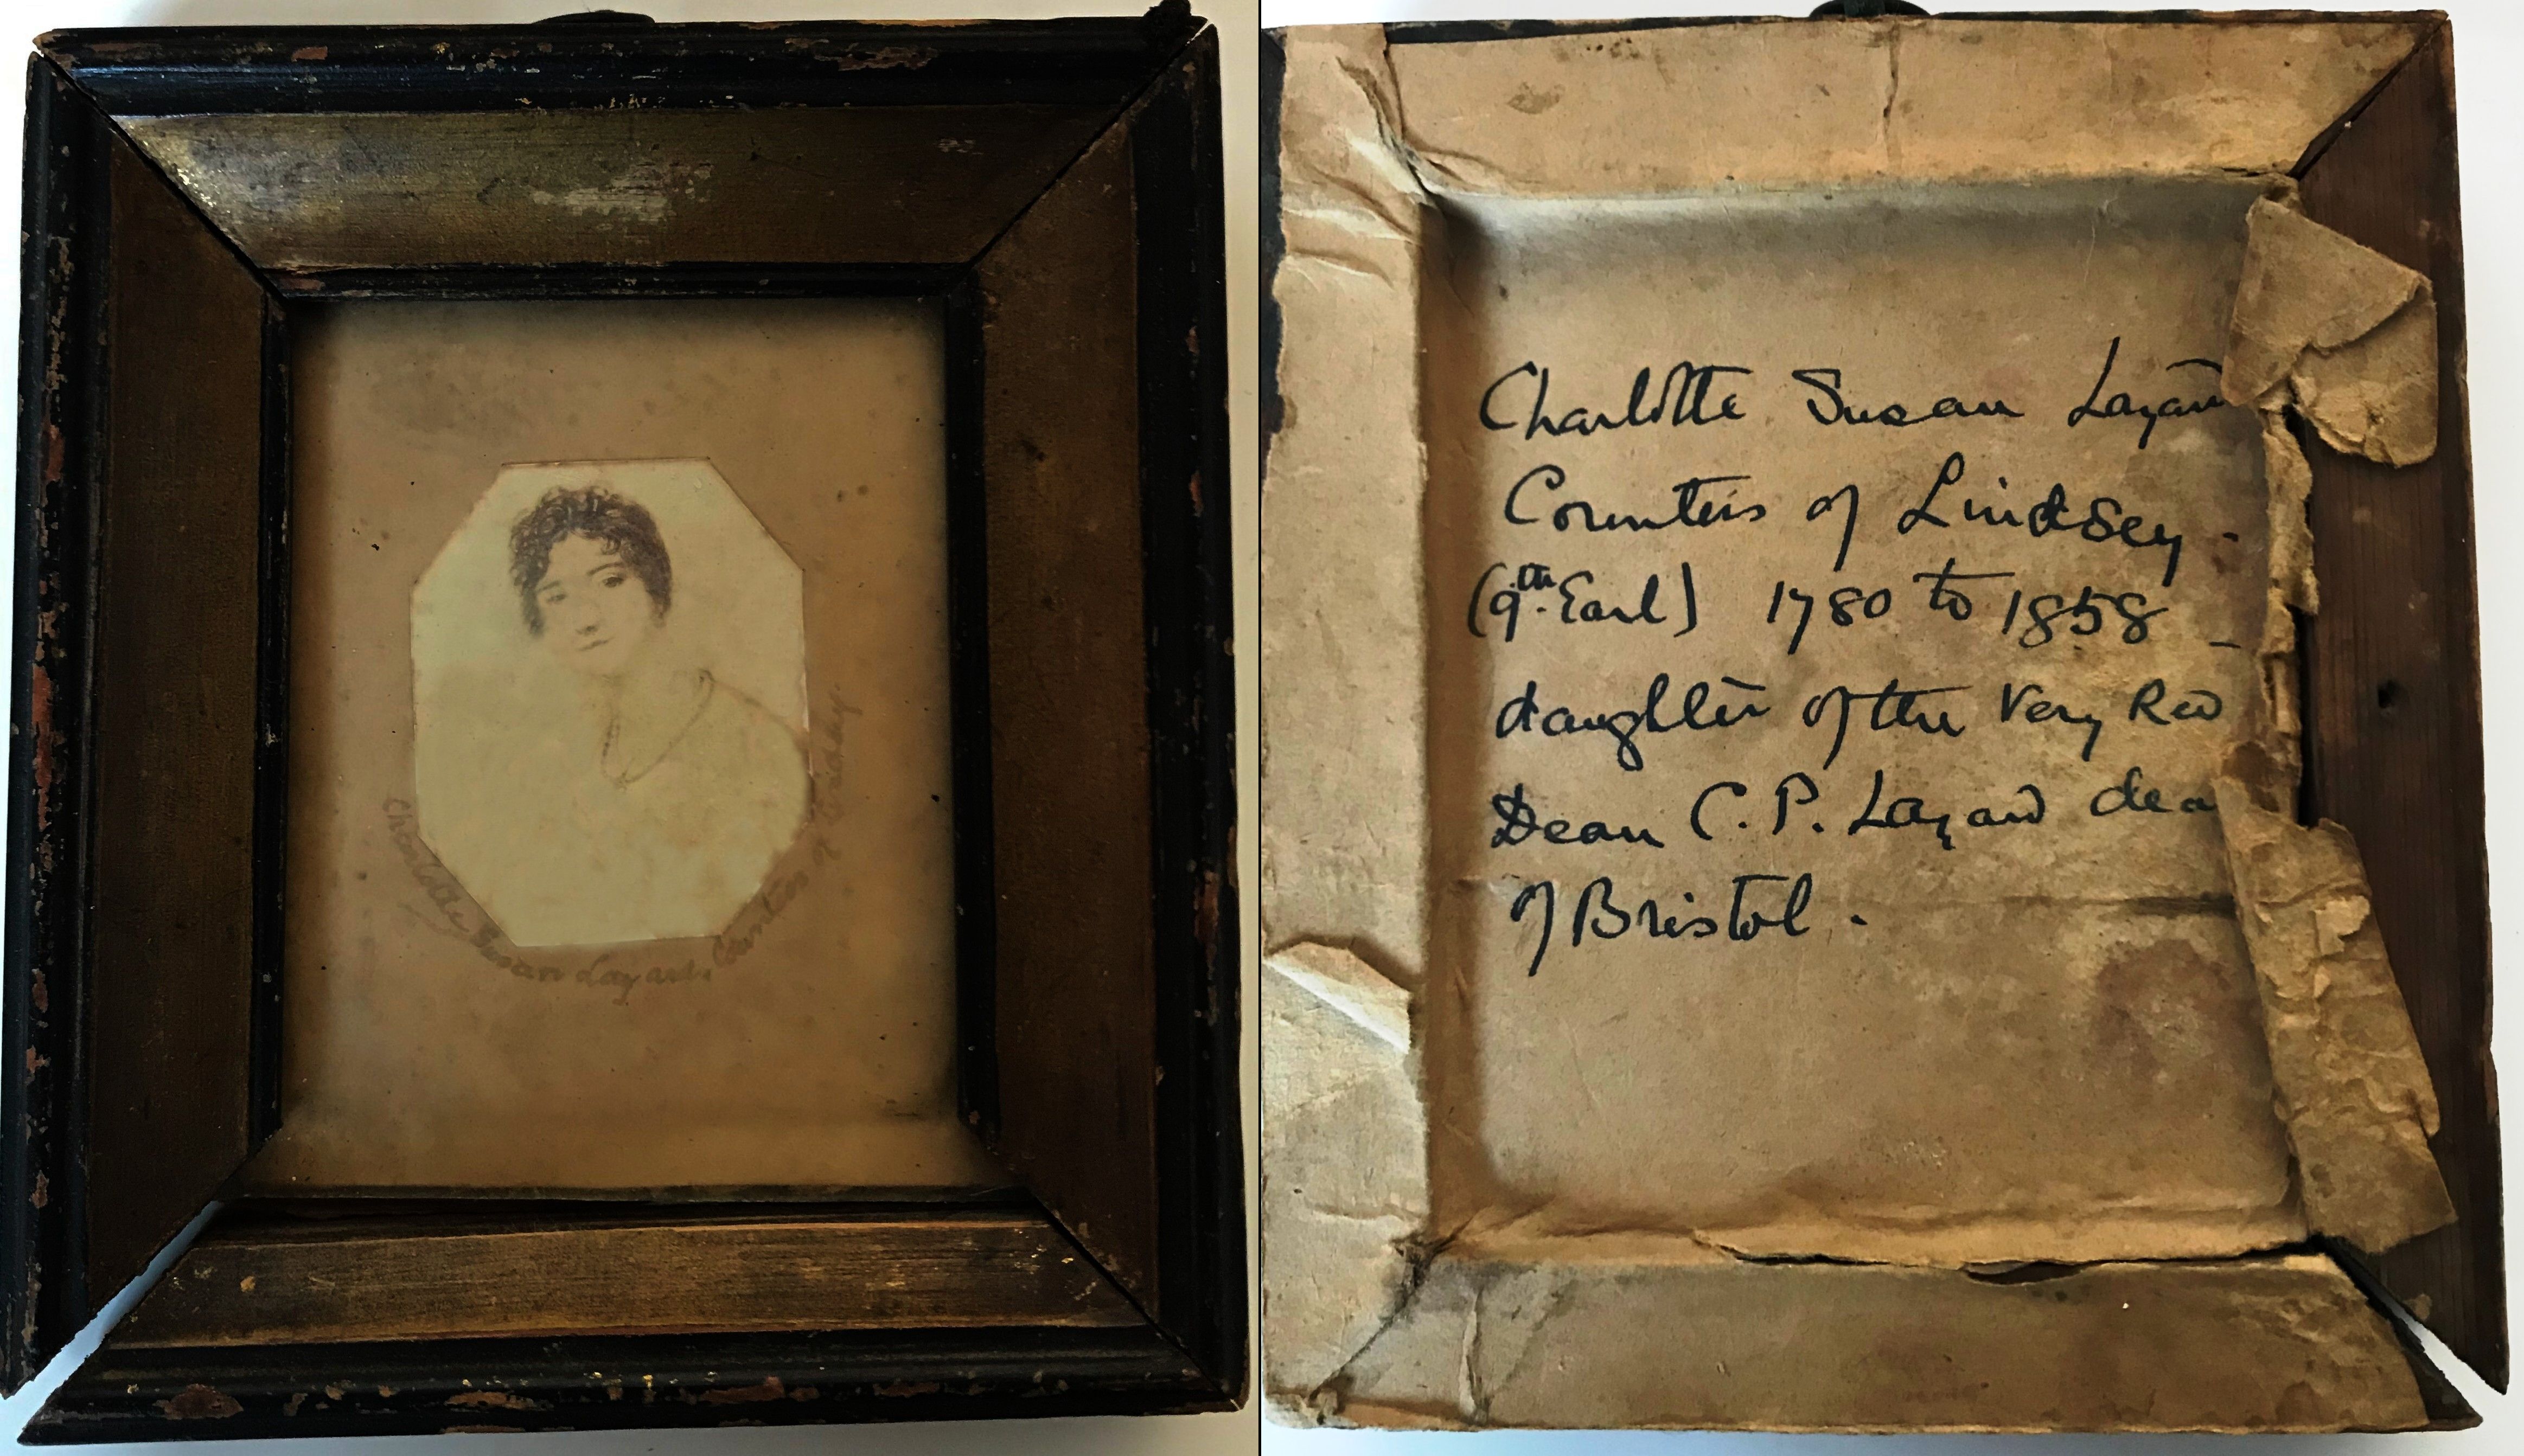 Charlotte Susan Layard, Countess of Lindsey
Charlotte Susan Layard
Countess of Lindsey -
(9th. Earl) 1780 to 1858 -
daughter of the Very Rev
Dean C. P. Layard dea
of Bristol -